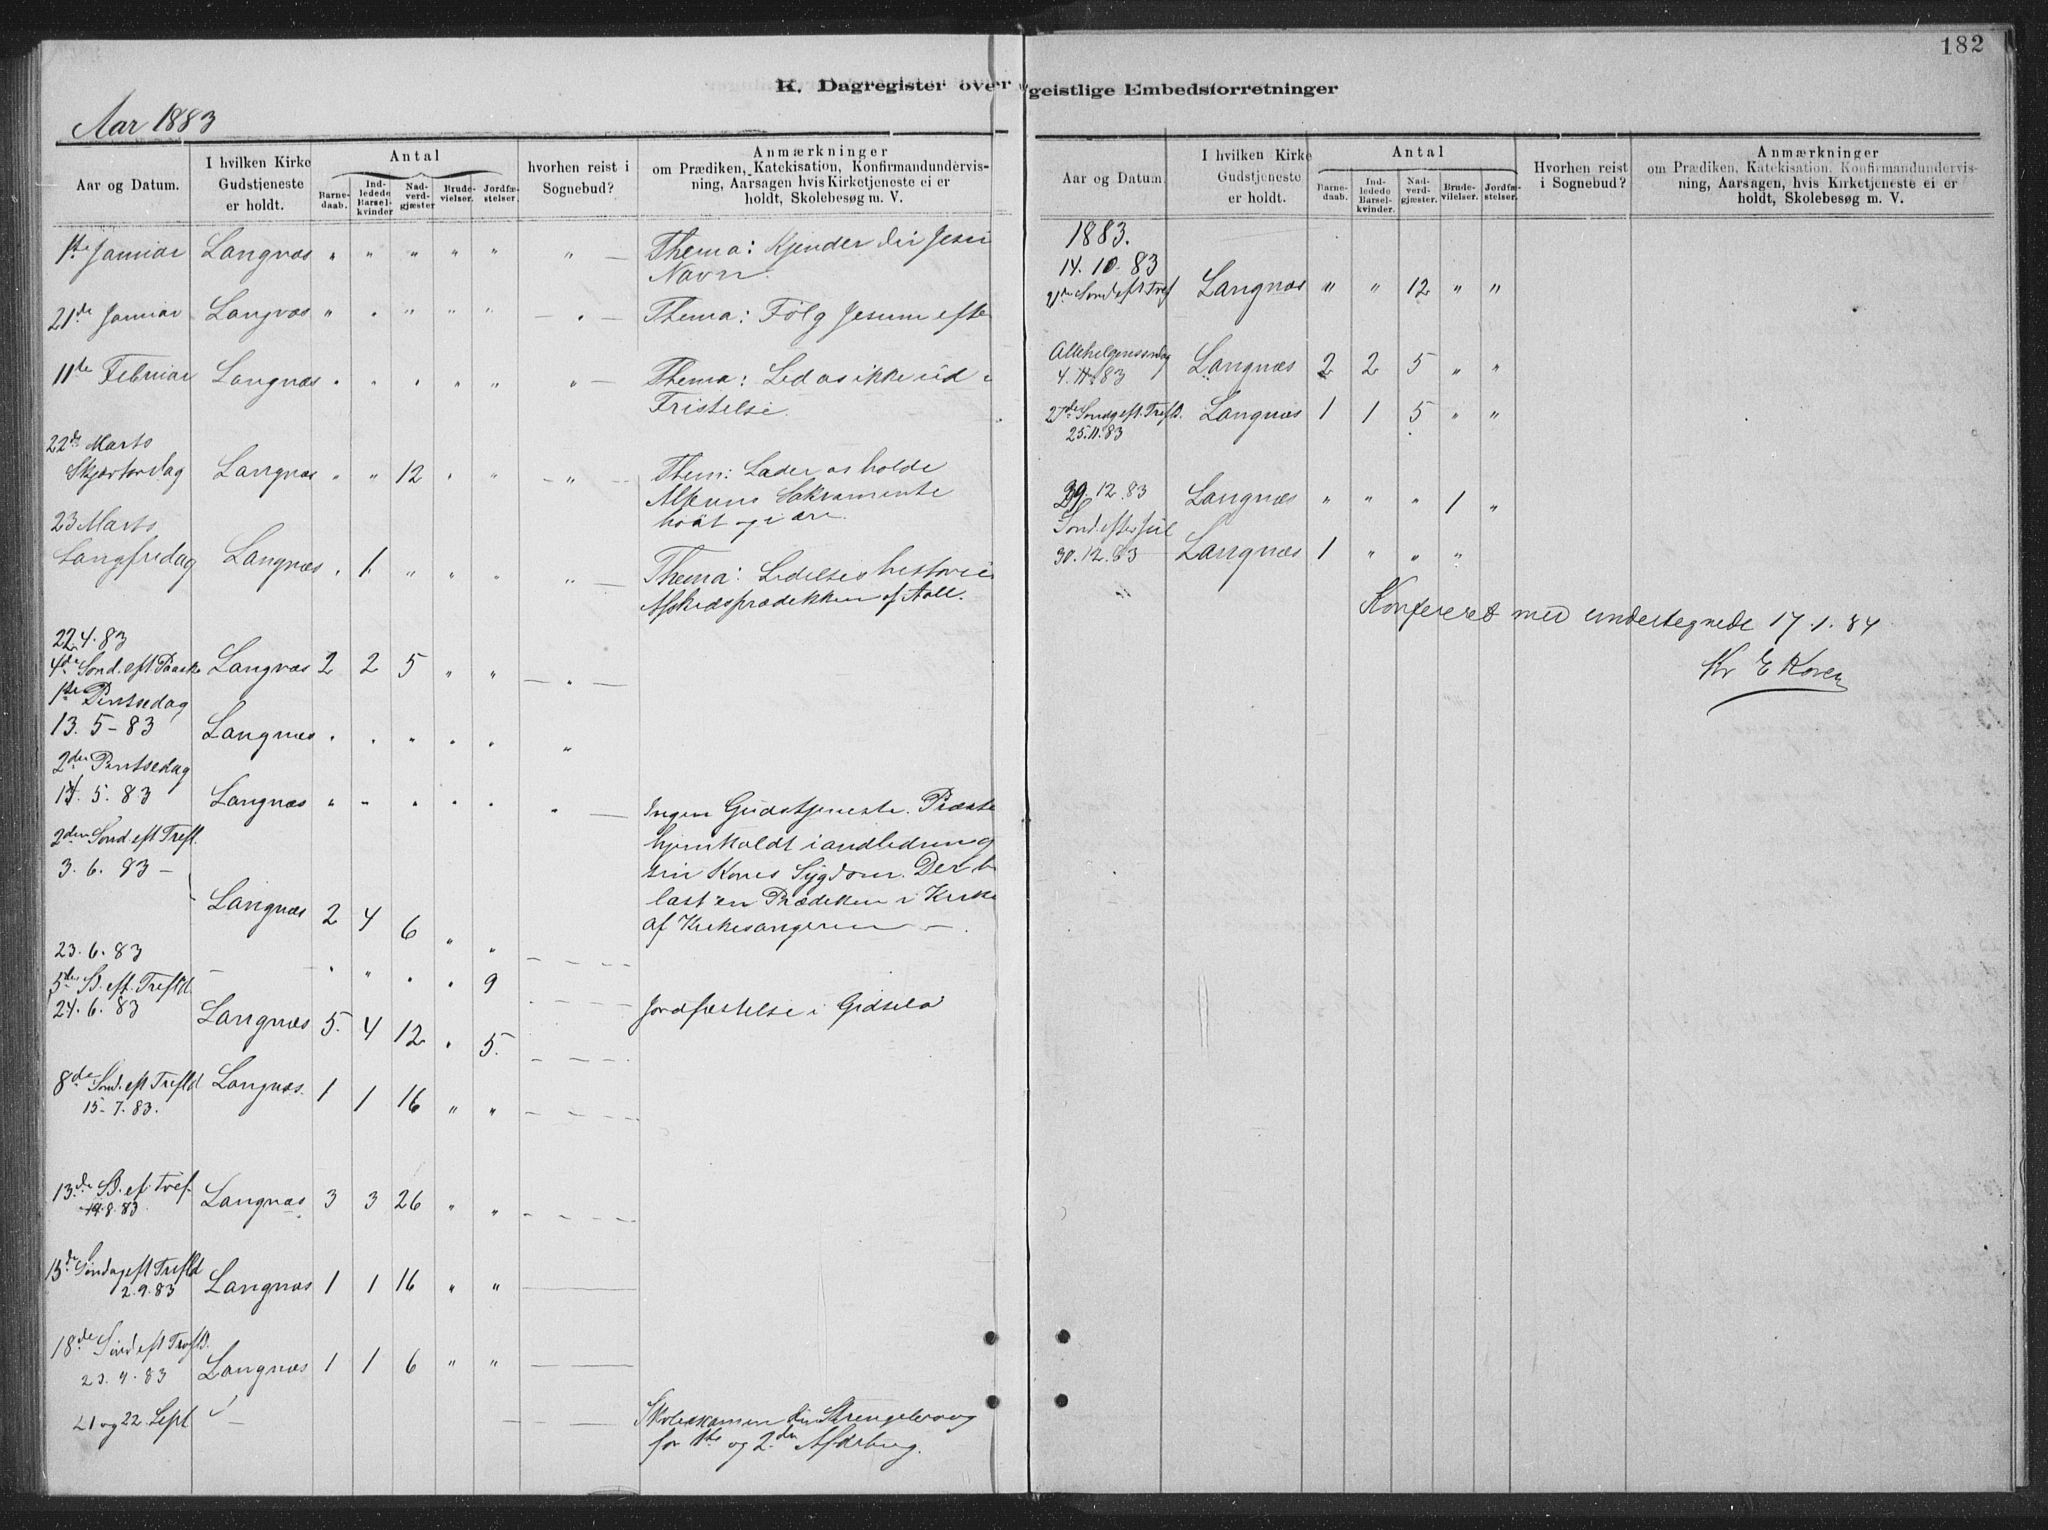 182
K. Dagregister over geistlige Embedsforretninger
Aar 1883
Aar og Datum.
I hvilken Kirke
Gudstjeneste
er holdt.
Antal
Barne-
daab.
Ind-
ledede
Barsel-
kvinder
Nad-
verd-
gjæster
Brude-
vielser.
Jordfæ-
stelser.
hvorhen reist i
Sognebud?
Anmærkninger
om Prædiken, Katekisation, Konfirmandundervis-
ning, Aarsagen hvis Kirketjeneste ei er
holdt, Skolebesøg m. V.
1ste Januar Langnæs " " " " " " — Thema: Kjender du Jesu
Navn.
21de Januar Langnæs " " " " " — " — Thema: Følg Jesum efte
11te Februar Langnæs " " " " " " — Thema: Led os ikke ud i
Fristelse.
22de Marts
Skjærtorsdag Langnæs " " 12 " " — " — Them: Lader os holde
Alterens Sakramente
høit og i ære
23 Marts
Langfredag Langnæs " 1 " " " " — Thema: Lidelseshistorie
Afskedsprædekken af
22.4.83
4de Sond. eft Paaske Langnæs 2 2 5 " " — " —
1ste Pintsedag
13. 5-83 Langnæs " " " " " "
2den Pintsedag
14. 5. 83 Langnæs " " " " " " — Ingen Gudstjeneste. Præste
2den Sond. eft Trefl.
3. 6. 83 — hjemkaldt i andledning
sin Kones Sygdom. Der b
Langnæs 2 4 6 " " læst en Prædeken i Kirke
af Kirkesangeren —
23. 6. 83 — " " " " 9
5de S. eft. Trefld.
24. 6. 83 Langnæs 5. 4 12 " 5. Jordfæstelse i Gidsela
8de Sond. eft Trefld Langnæs. 1 1 16 " "
15-7.83.
13de S. ef. Tref. Langnæs 3 3 26 " "
19.8.83
15de Søndag eft Trefld
2.9.83 Langnæs 1 1 16 " " —
18de Sønd eft Trefld.
83 Langnæs 1 1 6 " " —
21 og 22. Sept — Skoleexamen
for 1ste og 2den
Aar og Datum.
I hvilken Kirke
Gudstjeneste
er holdt.
Antal
Barne-
daab.
Ind-
ledede
Barsel-
kvinder.
Nad-
verd-
gjæster.
Brude-
vielser.
Jordfæ-
stelser.
Hvorhen reist
i Sognebud?
Anmærkninger
om Prædiken, Katekisation, Konfirmandundervis-
ning, Aarsagen, hvis Kirketjeneste ei er
holdt, Skolebesøg m. V.
1883.
14. 10. 83
21de Sond eft Tref Langnæs " " 12 " "
Allehelgensøndag
4. 11. 83 Langnæs 2 2 5 " "
27de Søndg eft. Trefld. Langnæs 1 1 5 " "
25.11.83
29. 12. 83 Langnæs " " " 1 "
Sond. efter Jul
30. 12. 83 Langnæs 1 " " "
Konfereret med undertegnede 17. 1. 84
Kr E Koren